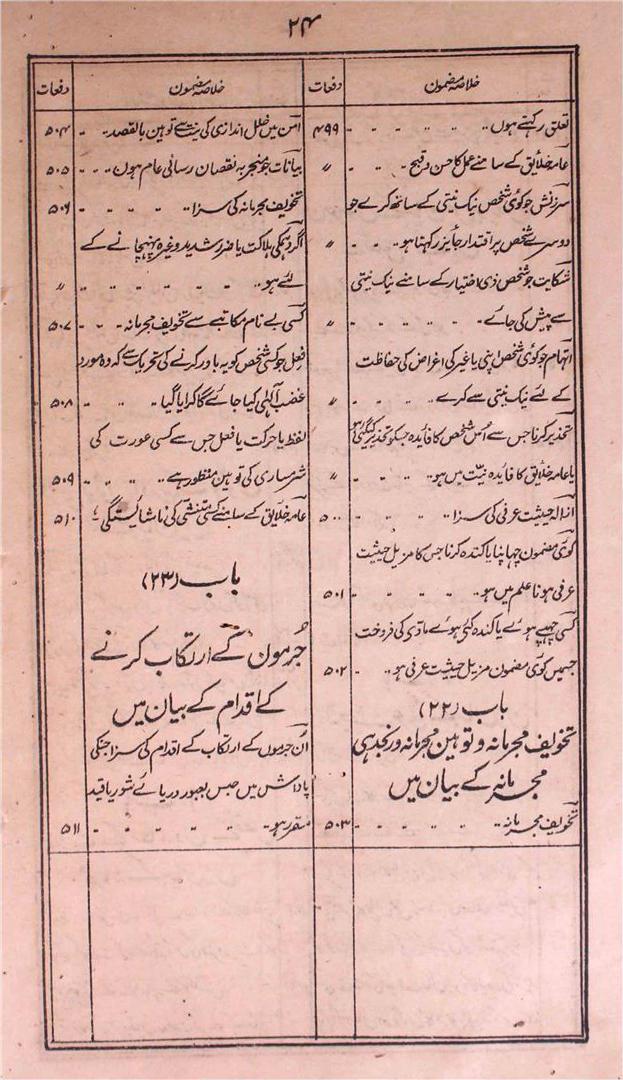 ۲۴
خلاصہ مضمون
دفعات
تعلق رکہتے ہوں ۴۹۹
عامہ خلایق کے سامنے عمل کا حسن و قبح 〃
سرزنش جو کوئی شخص نیک نیتی کے ساتھ کرے جو
دوسرے شخص پر اقتدار جایز رکہتا ہو 〃
شکایت جو شخص ذی اختیار کے سامنے نیک نیتی
سے پیش کی جائے 〃
اتہام جو کوئی شخص اپنی یا غیر کی اغراض کی حفاظت
کے لئے نیک نیتی سے کرے 〃
تحذیر کرنا جس سے اُس شخص کا فایدہ جسکو تحذیر کیگئی ہو
یا عامہ خلایق کا فایدہ نیّت میں ہو 〃
ازالہ حیثیت عرفی کی سزا ۵۰۰
کوئی مضمون چہاپنا یا کندہ کرنا جس کا مزیل حیثیت
عرفی ہونا علم میں ہو ۵۰۱
کسی چہپے ہوئے یا کندہ کئی ہوئے مادی کی فروخت
جسمیں کوئی مضمون مزیل حیثیت عرفی ہو ۵۰۲
باب (۲۲)
تخویف مجرمانہ و توہین مجرمانہ و رنجدہی
مجرمانہ کے بیان میں
تخویف مجرمانہ ۵۰۳
خلاصہ مضمون
دفعات
امن میں خلل اندازی کی نیت سے توہین بالقصد ۵۰۴
بیانات جو منجر بہ نقصان رسائی عام ہوں ۵۰۵
تخویف مجرمانہ کی سزا ۵۰۶
اگر دہمکی ہلاکت یا ضرر شدید وغیرہ پہنچانے کے
لئے ہو 〃
کسی بے نام مکاتبے سے تخویف مجرمانہ ۵۰۷
فعل جو کسی شخص کو یہ باور کرنے کی تحریک سے کہ وہ مورد
غضب آلہی کیا جائے گا کرایا گیا ۵۰۸
لفظ یا حرکت یا فعل جس سے کسی عورت کی
شرمساری کی توہین منظور ہے ۵۰۹
عامہ خلایق کے سامنے کسی متنشی کی ناشایستگی ۵۱۰
باب (۲۳)
جُرموں کے ارتکاب کرنے
کے اقدام کے بیان میں
اُن جرموں کے ارتکاب کے اقدام کی سزا جنکی
پاداش میں حبس بعبور دریائے شور یا قید
مقرر ہو ۵۱۱